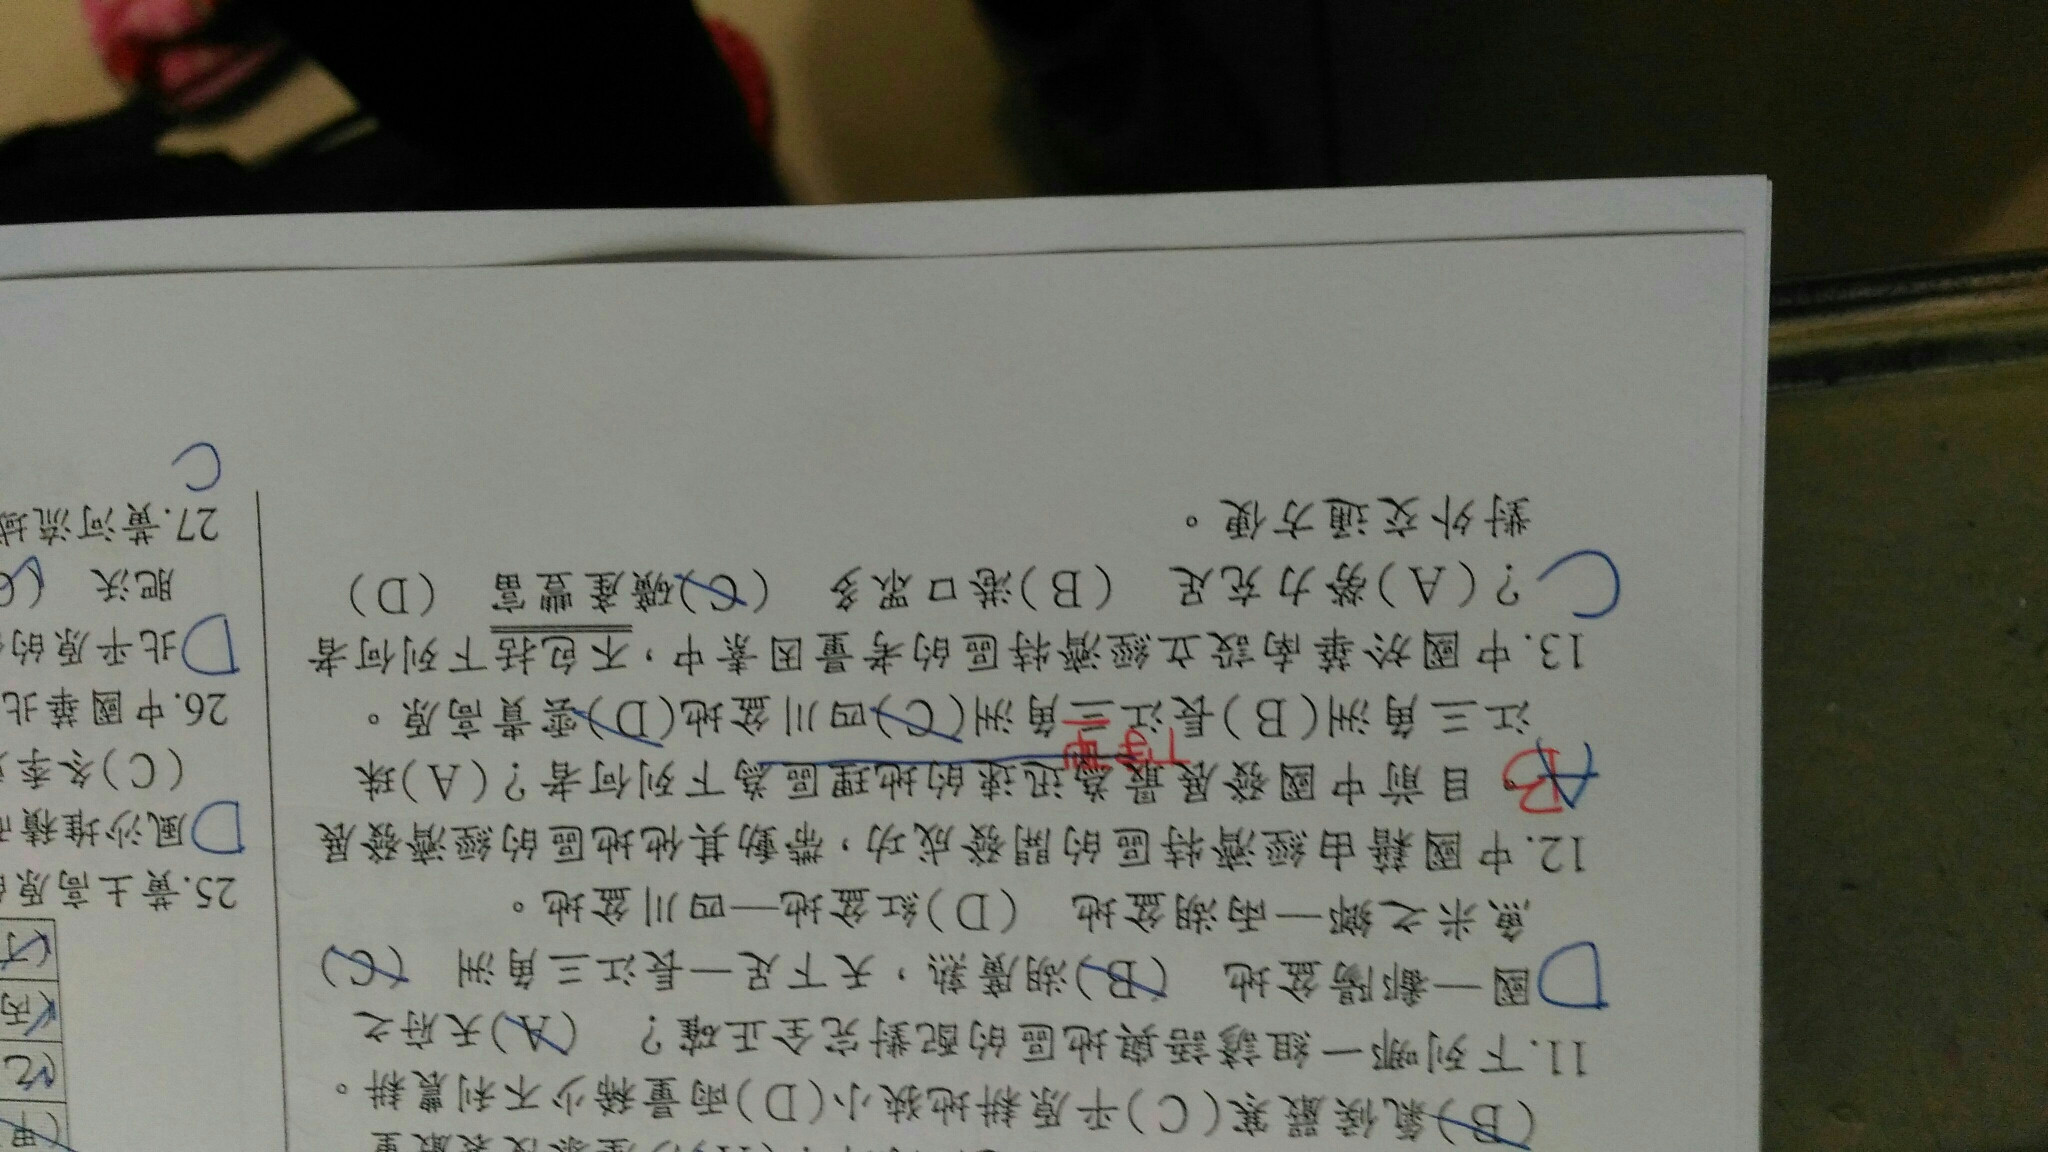 (B)氣候嚴寒(C)平原耕地狹小(D)雨量稀少不利農耕。
11.下列哪一組諺語與地區的配對完全正確？ (A)天府之
D
國—鄱陽盆地 (B)湖廣熟，天下足—長江三角洲 (C)
魚米之鄉—兩湖盆地 (D)紅盆地—四川盆地。
12.中國藉由經濟特區的開發成功，帶動其他地區的經濟發展
A B
。目前中國發展最為迅速的地理區為下列何者？(A)珠
江三角洲(B)長江三角洲(C)四川盆地(D)雲貴高原。
13.中國於華南設立經濟特區的考量因素中，不包括下列何者
C
？(A)勞力充足 (B)港口眾多 (C)礦產豐富 (D)
對外交通方便。
(甲
(乙
(丙
(丁
25.黃土高原的
D
風沙堆積而
(C)冬季
26.中國華北
D
北平原的
肥沃 (C
27.黃河流域
C